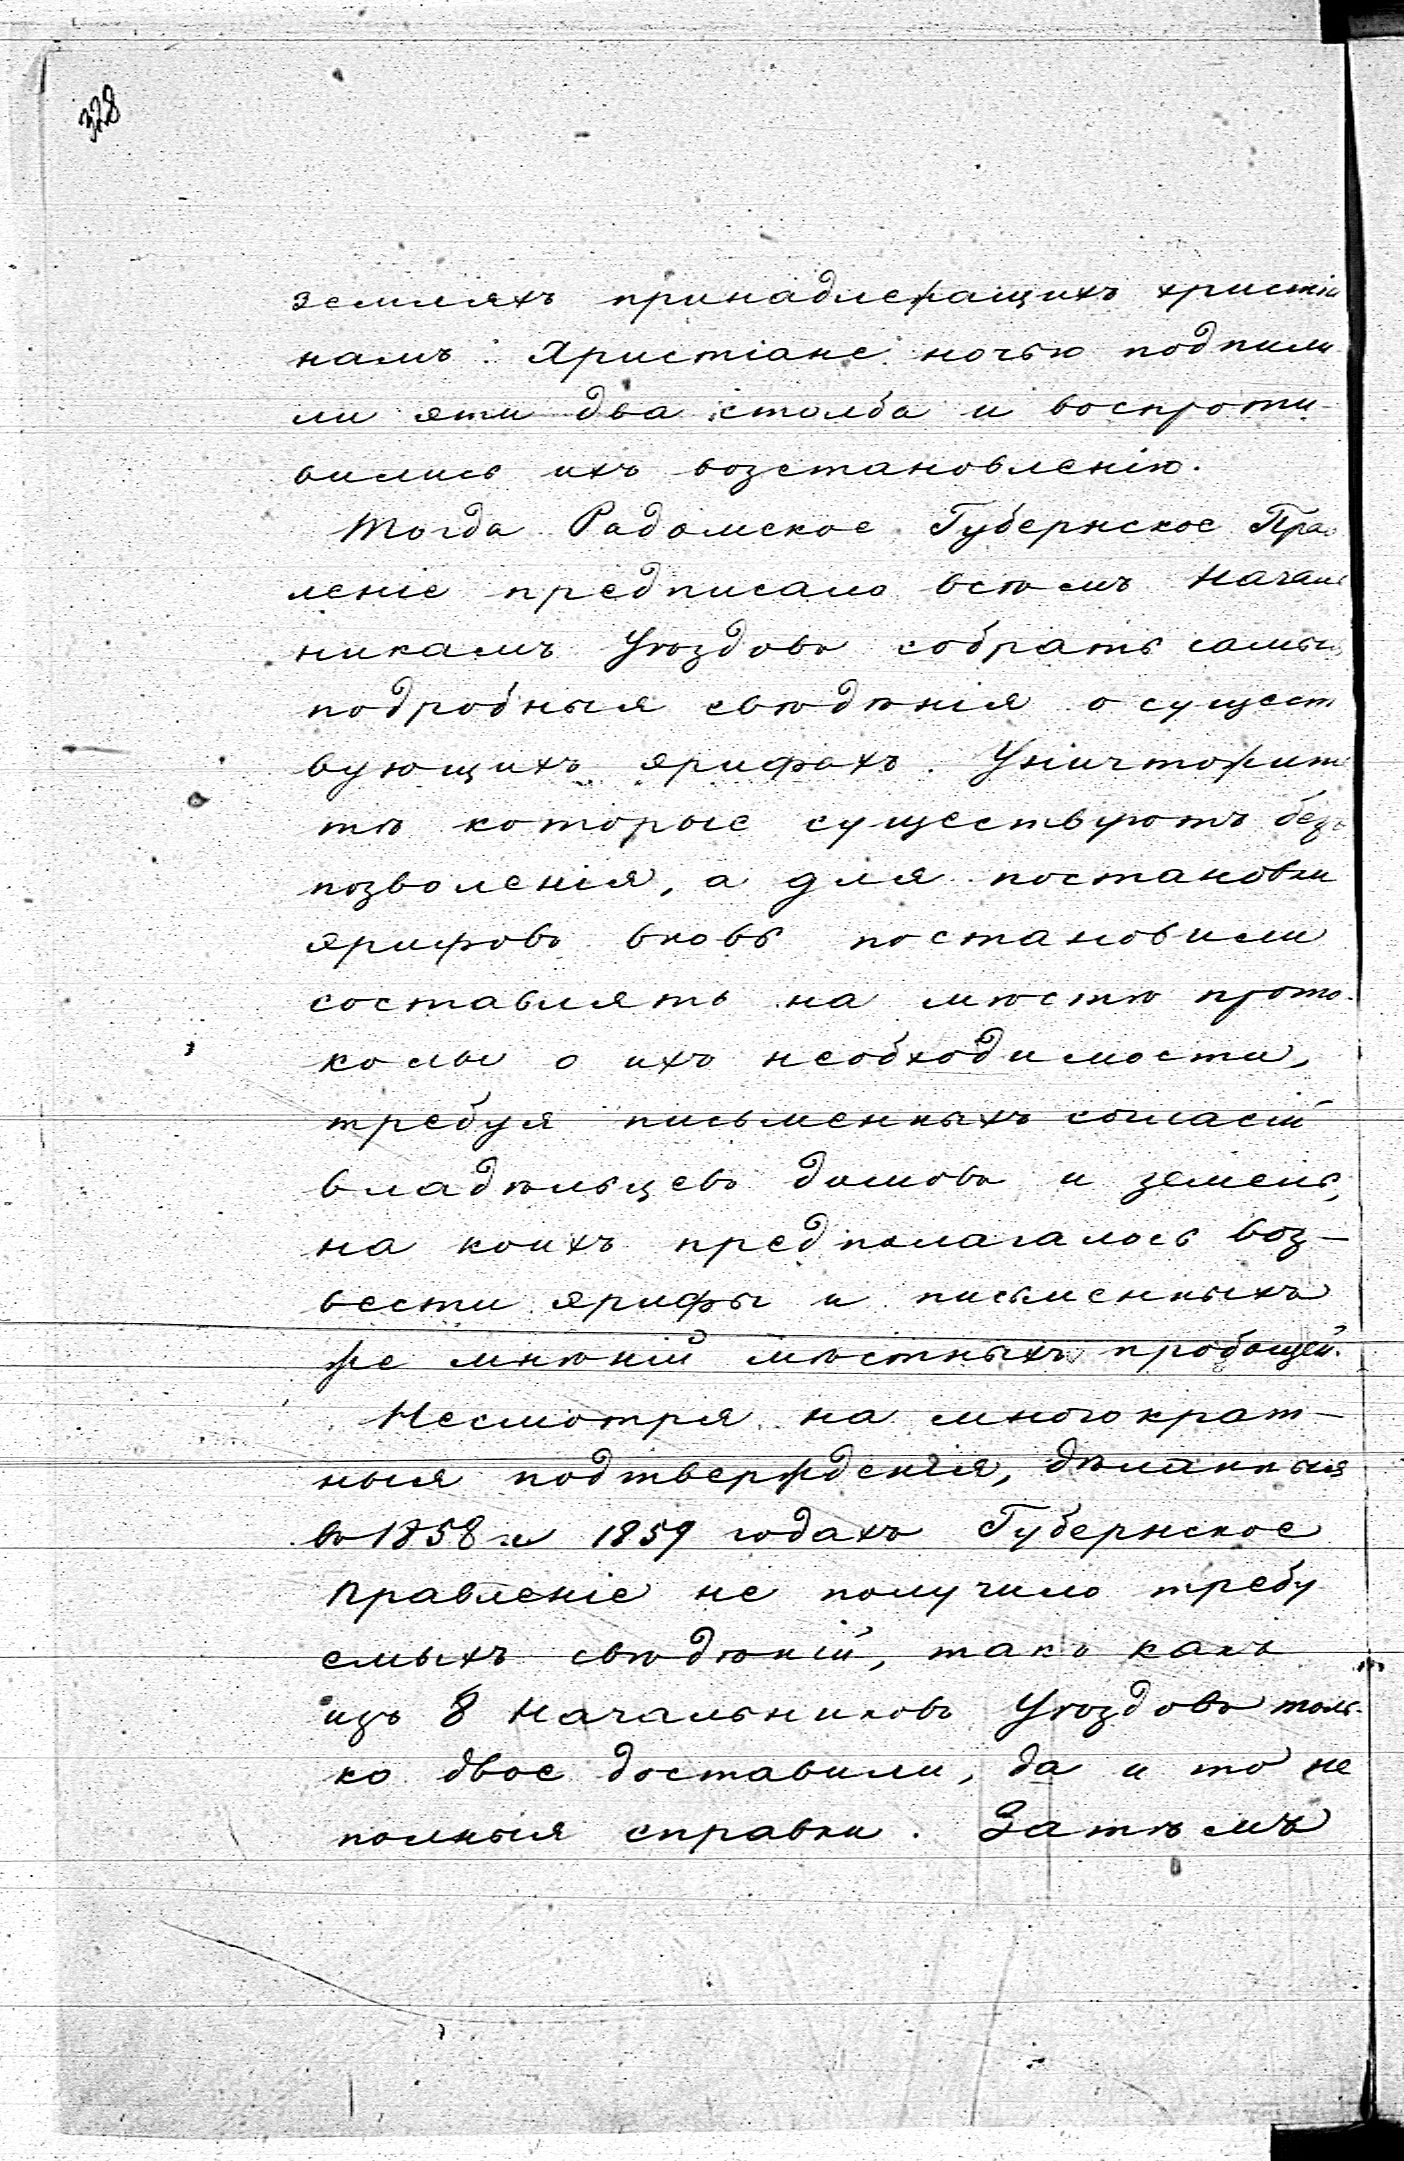 328
земляхъ принадлежащихъ христіа
намъ. Христіане ночью подпили-
ли эти два столба и воспроти-
вились ихъ возстановленію.
Тогда Радомское Губернское Прав
леніе предписало всѣмъ Началь
никамъ Уѣздовъ собрать самыя
подробныя свѣдѣнія о сущест
вующихъ эрифахъ. Уничтожить
тѣ которые существуютъ безъ
позволенія, а для постановки
эрифовъ вновь постановили
составлять на мѣстѣ прото-
колы о ихъ необходимости,
требуя письменныхъ согласій
владѣльцевъ домовъ и земель,
на коихъ предполагалось воз-
вести эрифы и письменныхъ
же мнѣній мѣстныхъ пробощей.
Несмотря на многократ-
ныя подтвержденія, дѣланныя
въ 1858 и 1859 годахъ Губернское
Правленіе не получило требу
емыхъ свѣдѣній, такъ какъ
изъ 8 Начальниковъ Уѣздовъ толь-
ко двое доставили, да и то не
полныя справки. Затѣмъ